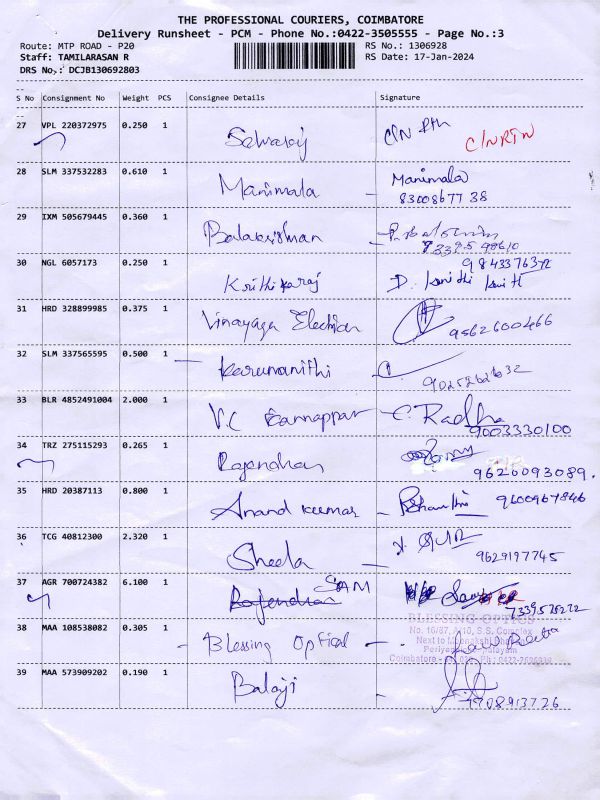 THE PROFESSIONAL COURIERS, COIMBATORE
Delivery Runsheet - PCM - Phone No.:0422-3505555 - Page No.:3
Route: MTP ROAD - P20 RS No.: 1306928
Staff: TAMILARASAN R RS Date: 17-Jan-2024
DRS No.: DCJB130692803
S No Consignment No Weight PCS Consignee Details Signature
27 VPL 220372975 0.250 1 Selvaraj C/N RTN C/N RTN
28 SLM 337532283 0.610 1 Manimala Manimala
8300867738
29 IXM 505679445 0.360 1 Balakrishnan
30 NGL 6057173 0.250 1 Krithikaraj D.
31 HRD 328899985 0.375 1 Vinayaga 9562600466
32 SLM 337565595 0.500 1 Karunanithi
33 BLR 4852491004 2.000 1 V.C Kannappan C. Radha
9003330100
34 TRZ 275115293 0.265 1 Rajendran
9620093089.
35 HRD 20387113 0.800 1 Anand Kumar 9600967846
36 TCG 40812300 2.320 1 Sheela
9629197745
37 AGR 700724382 6.100 1 Rajendran SAM
38 MAA 108538082 0.305 1 Blessing Optical
BLESSING OPTICS
No. 16/87, S.S. Complex
Next to
Coimbatore
39 MAA 573909202 0.190 1 Balaji